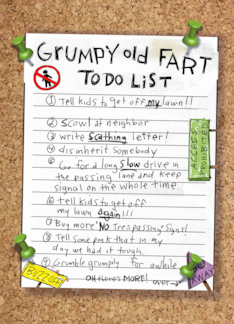 GRUMPY old FART
TO DO LIST
① Tell kids to get off my lawn!!
② Scowl at neighbor
③ write Scathing letter!
④ disinherit Somebody
⑤ Go for a long slow drive in
the passing lane and keep
signal on the whole time.
⑥ tell kids to get off
my lawn again!!!
⑦ Buy more "NO Trespassing" Signs!
⑧ Tell some punk that in my
day we had it tough
⑨ Grumble grumply for awhile
OH THERE'S MORE! OVER→
ACCESS
PROHIBITED
BUZZ OFF
AWAY